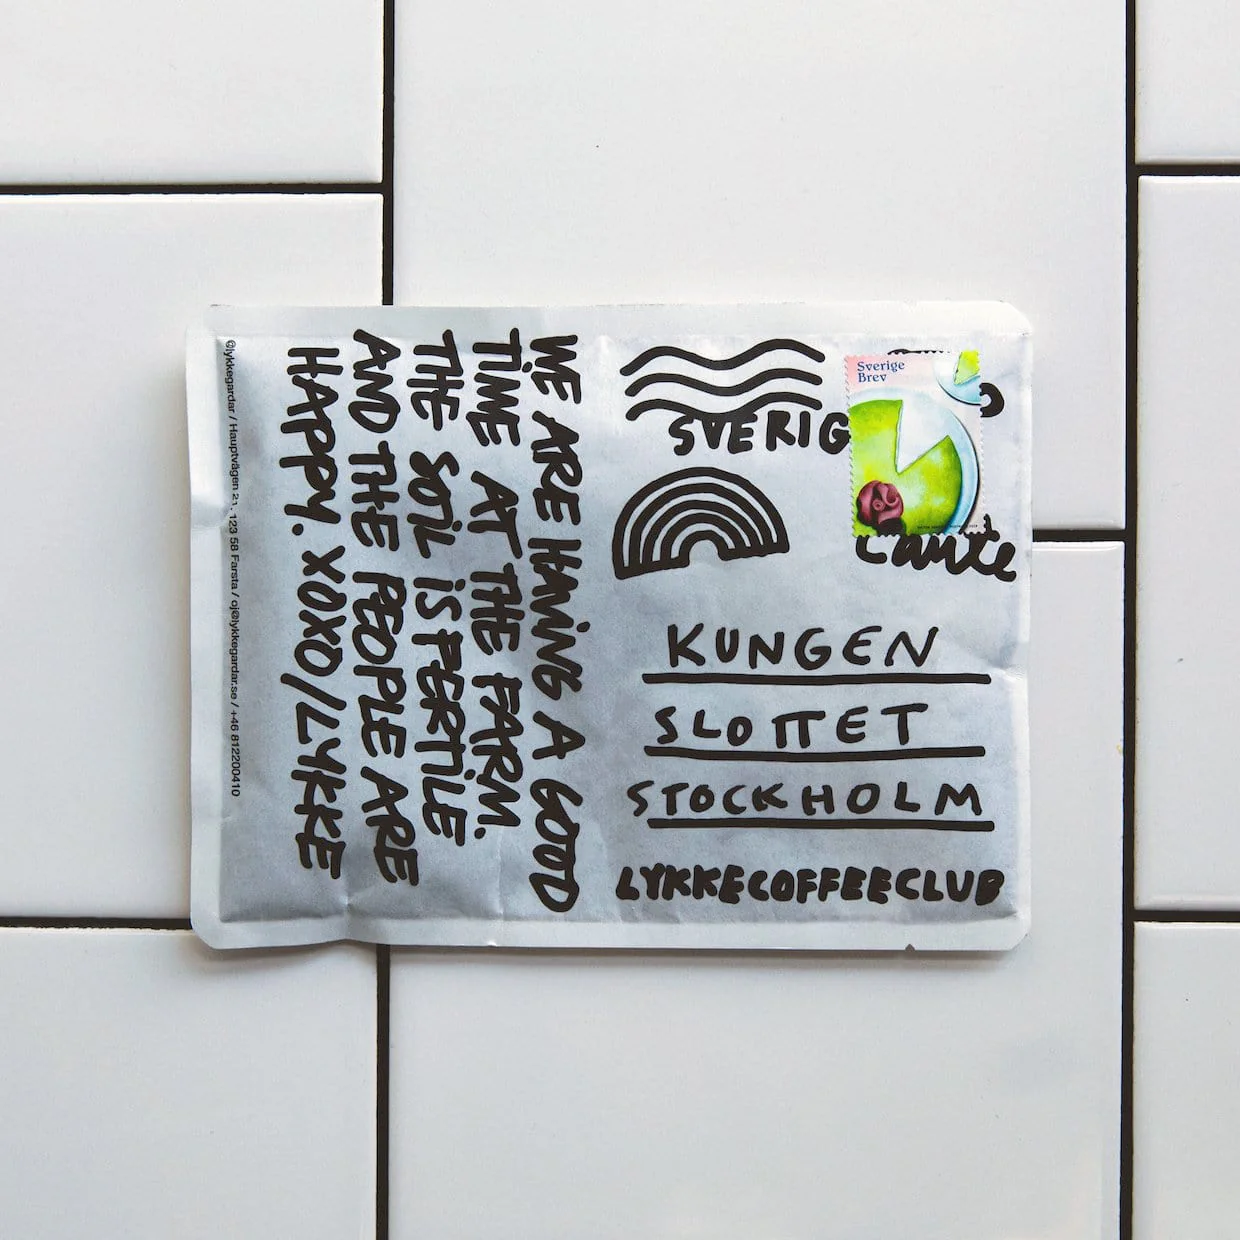 WE ARE HAVING A GOOD
TIME AT THE FARM.
THE SOIL IS FERTILE
AND THE PEOPLE ARE
HAPPY. XOXO/LYKKE
@lykkegardar / Hauptvägen 21, 123 58 Farsta / oj@lykkegardar.se / +46 812200410
SVERIG
Sverige
Brev
KUNGEN
SLOTTET
STOCKHOLM
LYKKECOFFEECLUB